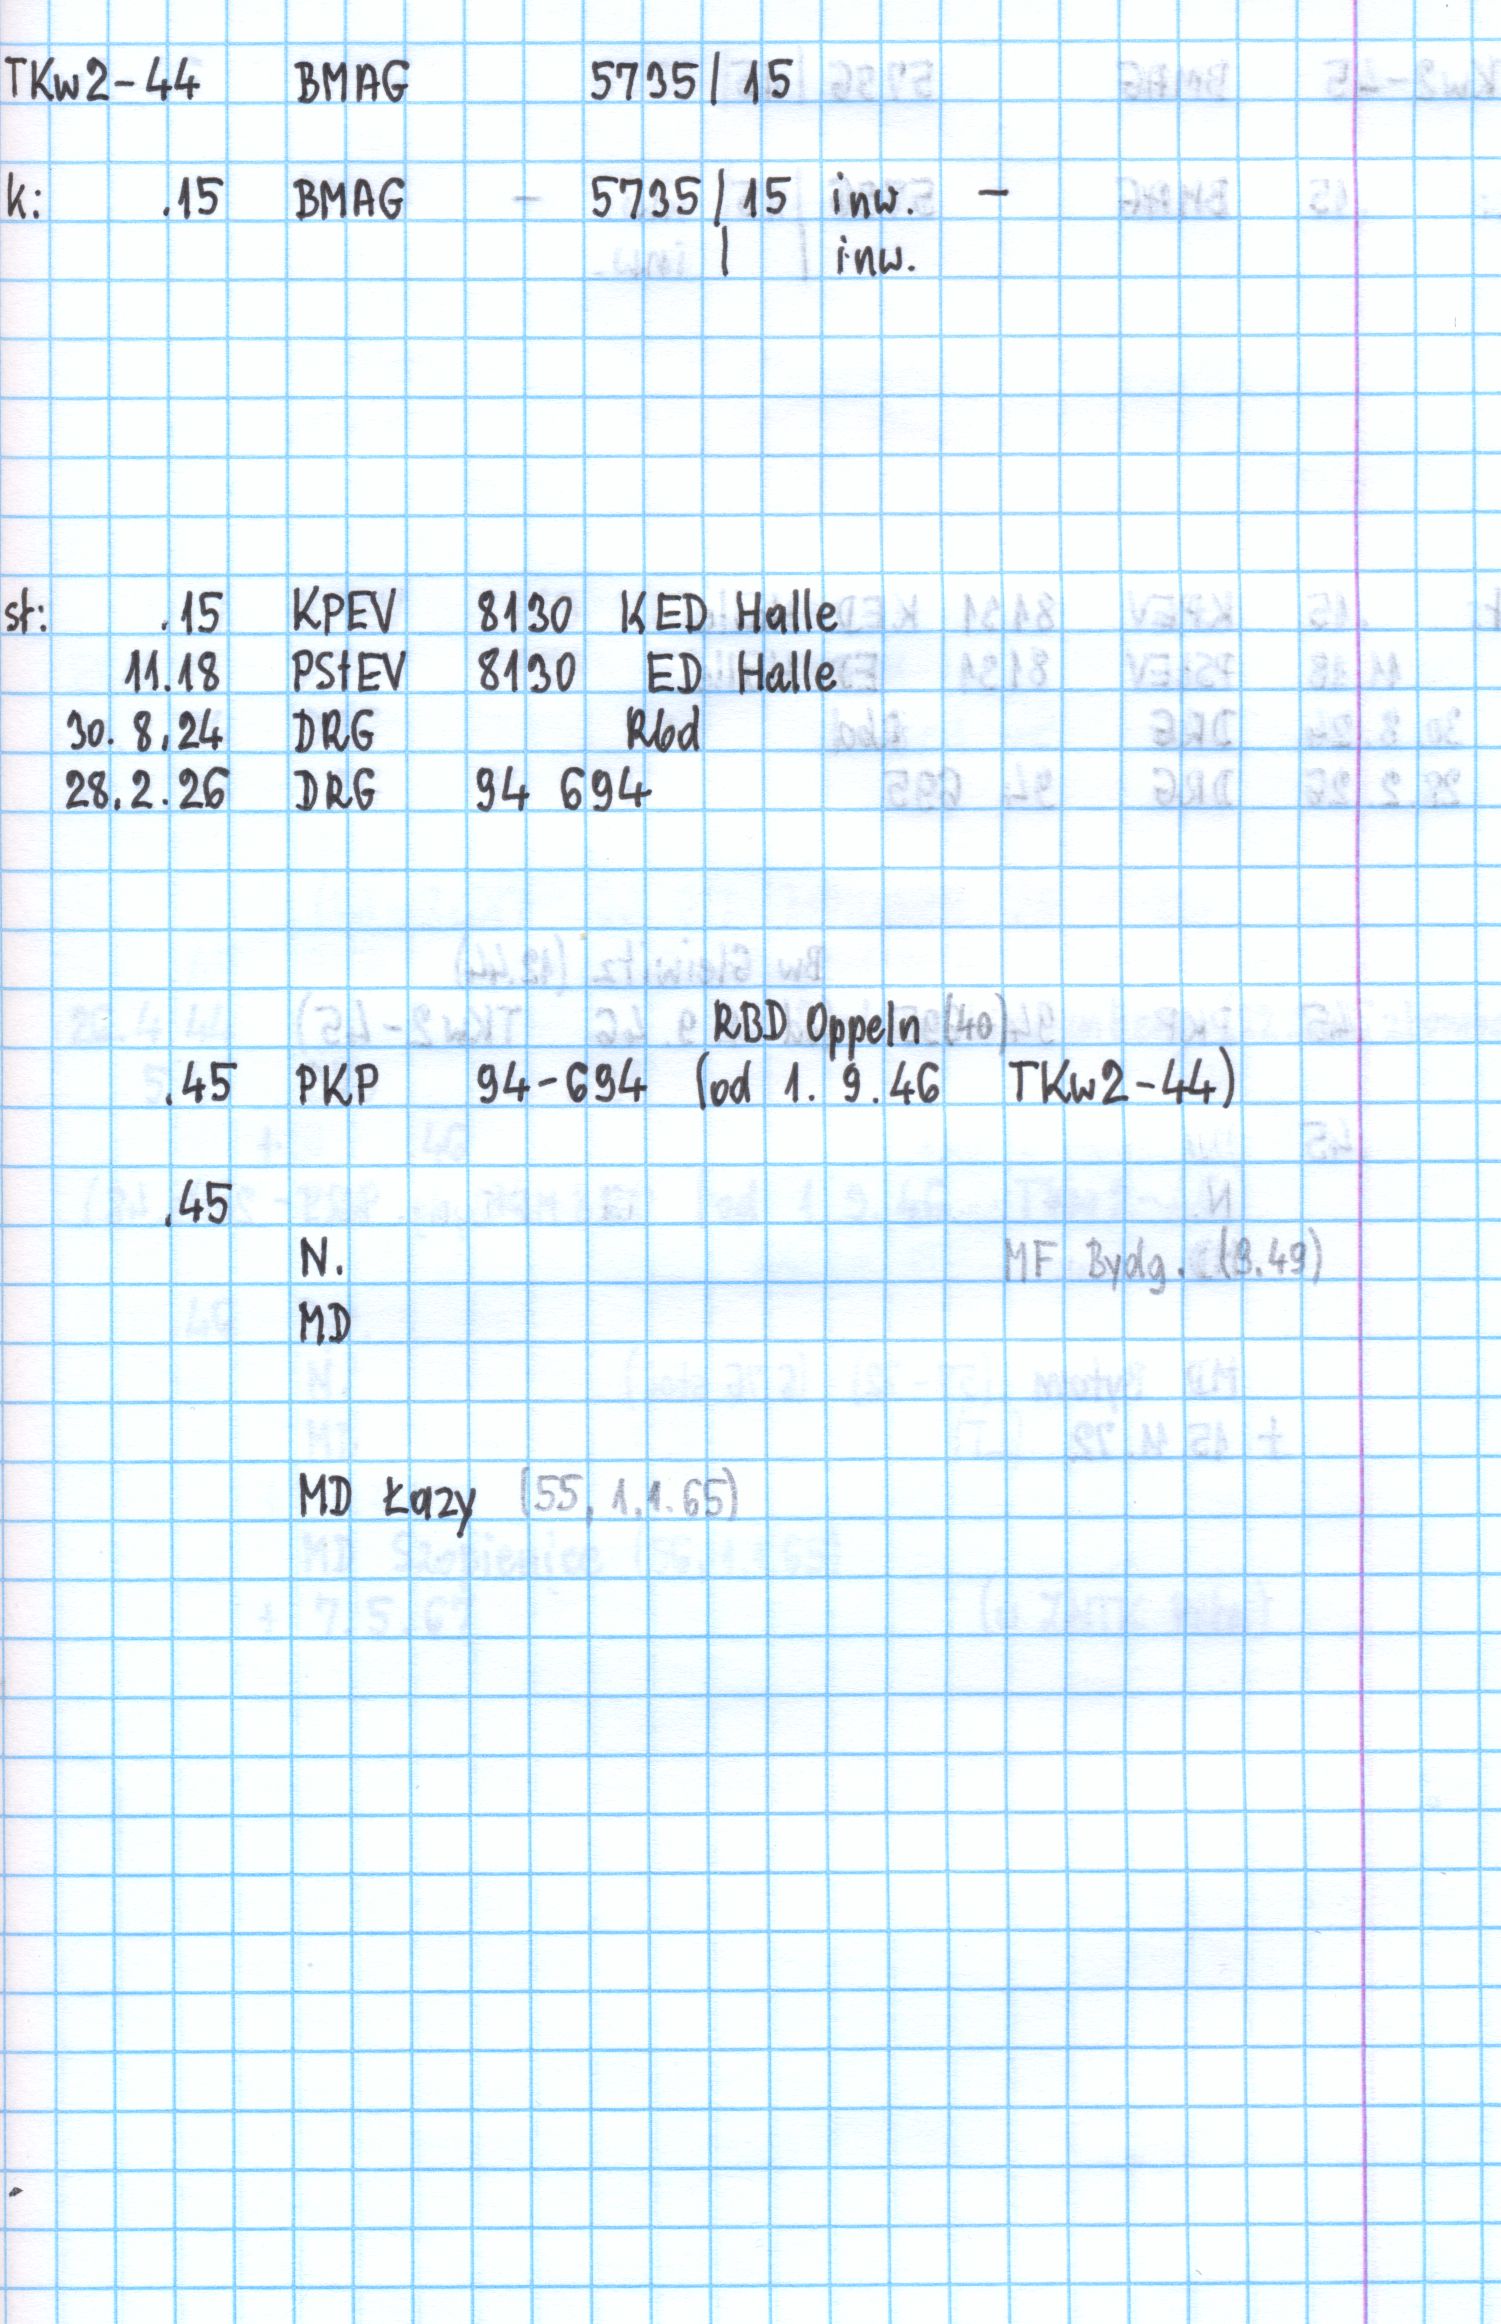 TKw2-44 BMAG 5735/15
k: .15 BMAG - 5735/15 inw. -
/ inw.
st: .15 KPEV 8130 KED Halle
11.18 PStEV 8130 ED Halle
30.8.24 DRG Rbd
28.2.26 DRG 94 694
RBD Oppeln (40)
.45 PKP 94-694 (od 1.9.46 TKw2-44)
.45
N. MF Bydg. (3.49)
MD
MD Łazy (55, 1.1.65)